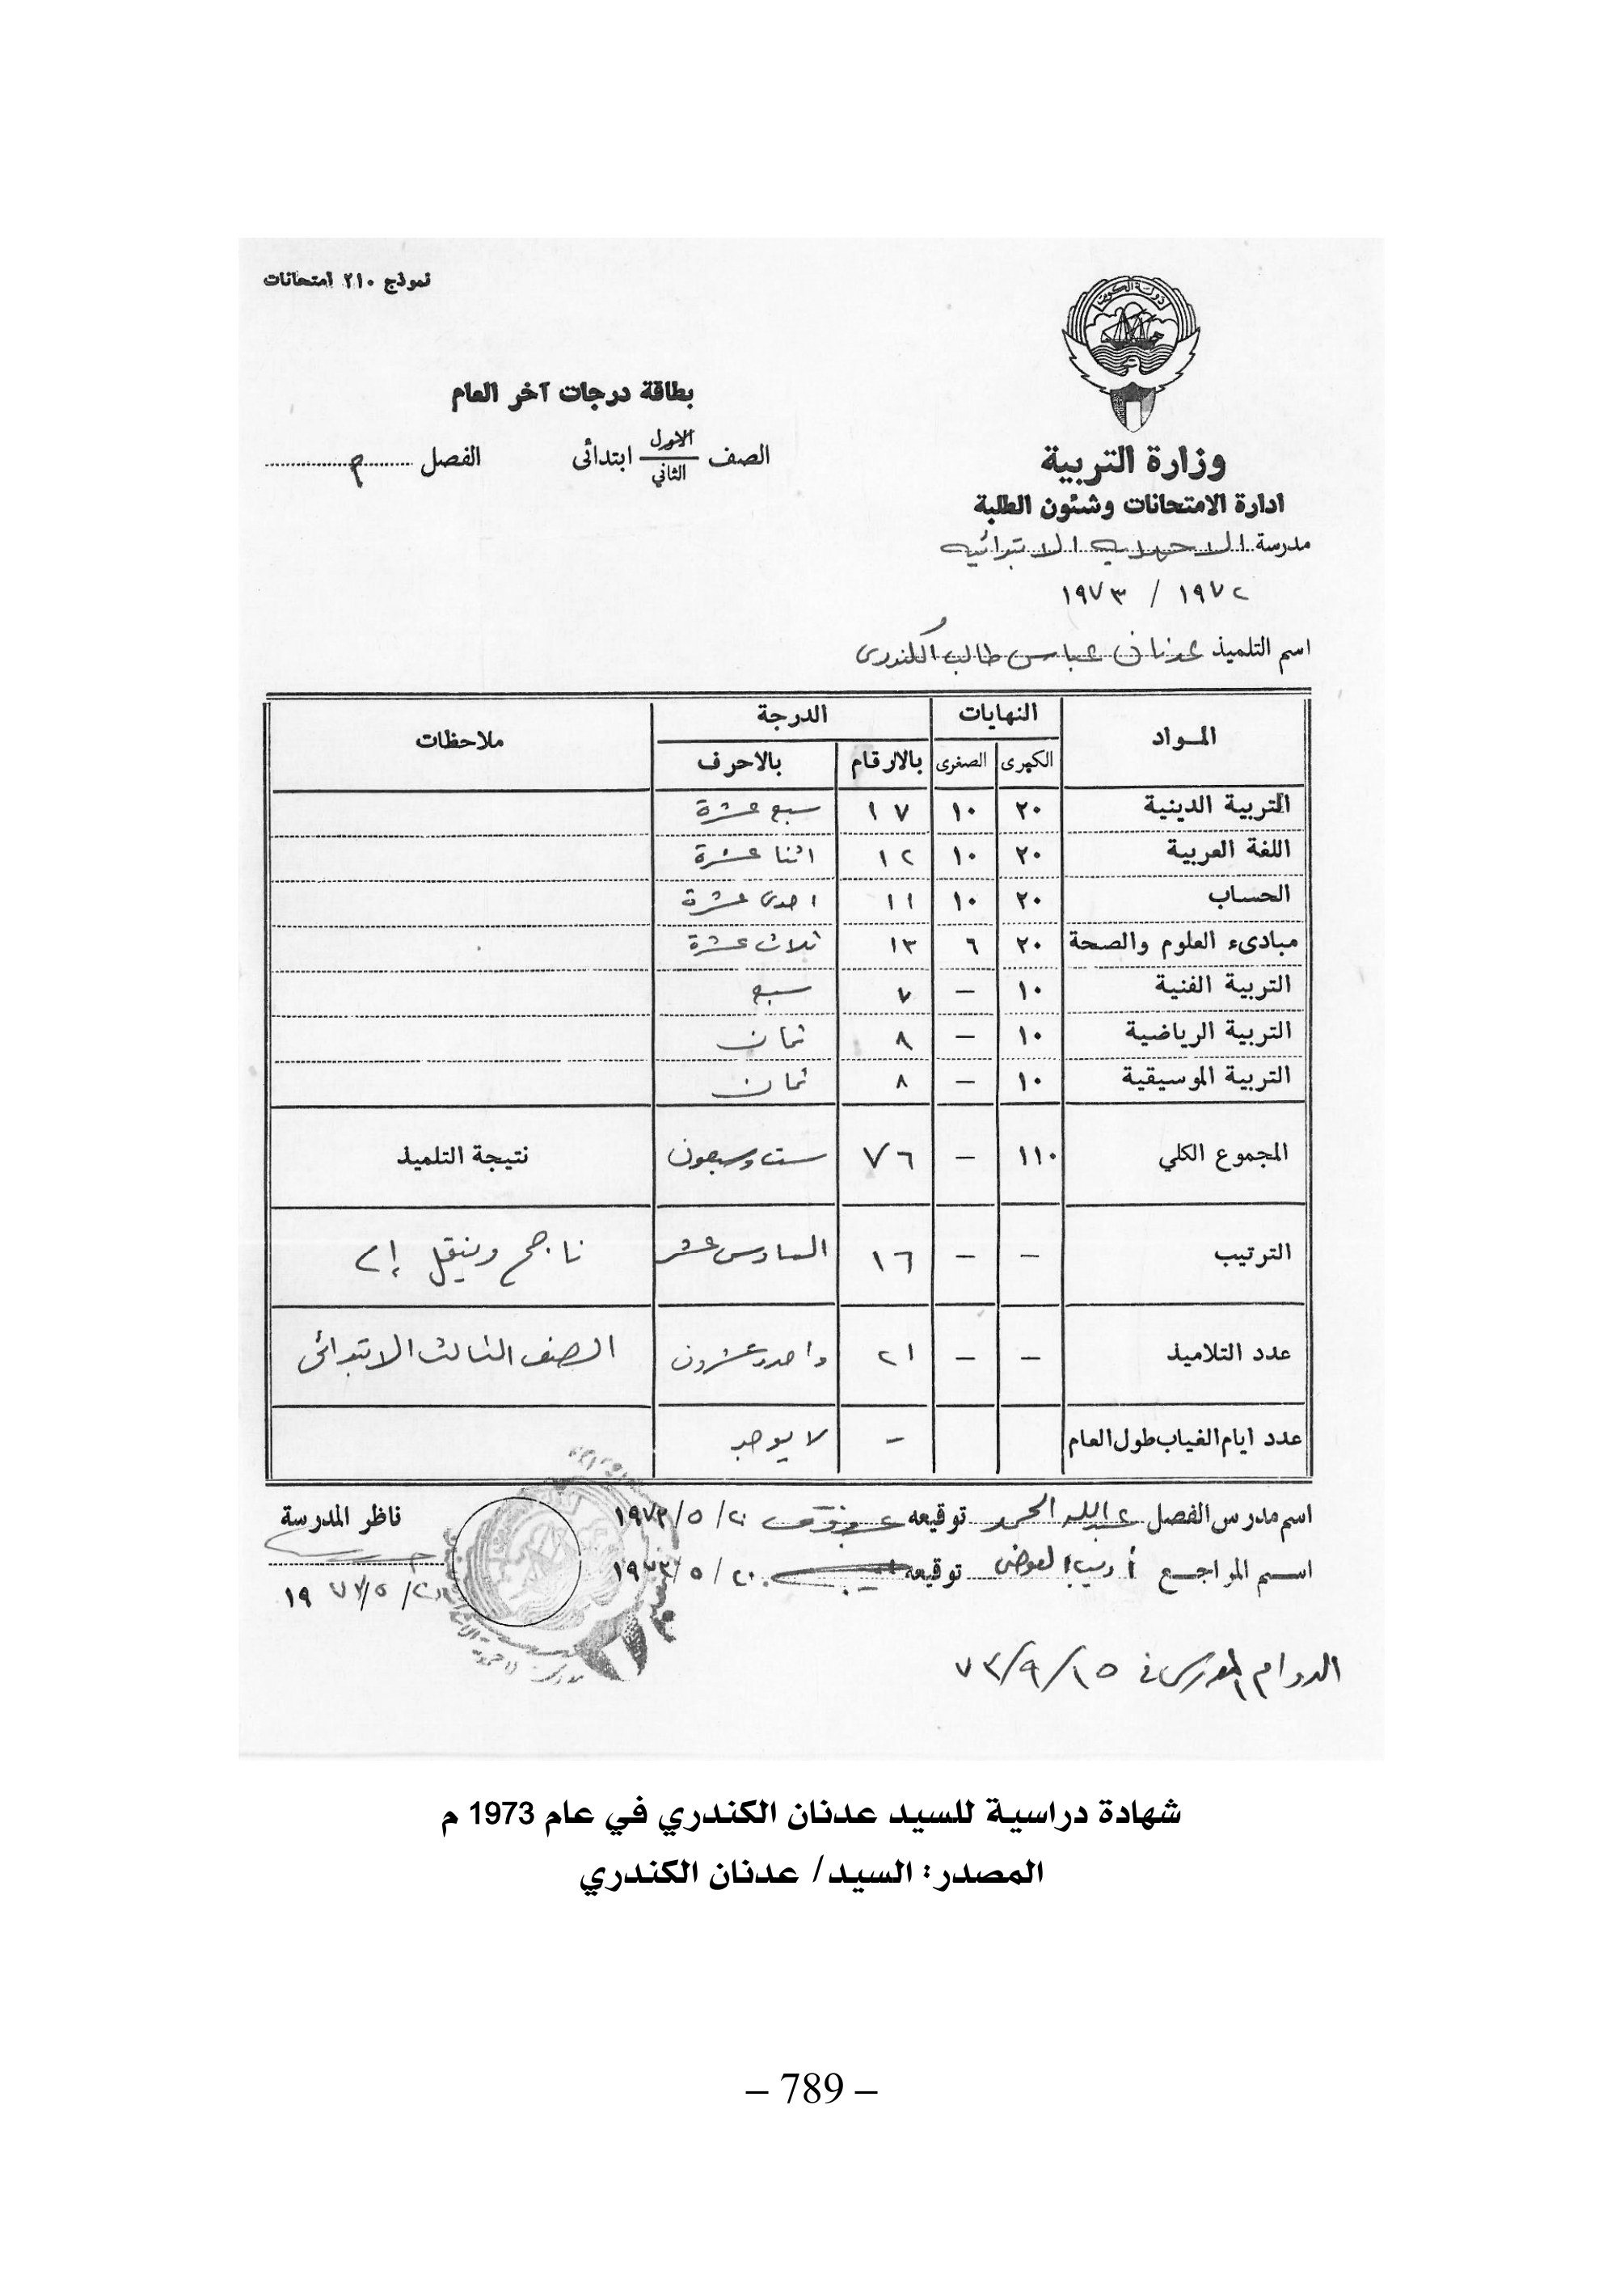 نموذج ٢١٠ امتحانات
دولة الكويت
وزارة التربية
ادارة الامتحانات وشئون الطلبة
بطاقة درجات آخر العام
الصف الاول / الثاني ابتدائى الفصل م
مدرسة الاحمدية الابتدائية
١٩٧٢ / ١٩٧٣
اسم التلميذ عدنان عباس طالب الكندرى
المـواد النهايات الدرجة ملاحظات
الكبرى الصغرى بالارقام بالاحرف
التربية الدينية ٢٠ ١٠ ١٧ سبع عشرة
اللغة العربية ٢٠ ١٠ ١٢ اثنا عشرة
الحساب ٢٠ ١٠ ١١ احدى عشرة
مبادىء العلوم والصحة ٢٠ ٦ ١٣ ثلاث عشرة
التربية الفنية ١٠ – ٧ سبع
التربية الرياضية ١٠ – ٨ ثمان
التربية الموسيقية ١٠ – ٨ ثمان
المجموع الكلي ١١٠ – ٧٦ ست وسبعون نتيجة التلميذ
الترتيب – – ١٦ السادس عشر ناجح وينقل إلى
عدد التلاميذ – – ٢١ واحد وعشرون الصف الثالث الابتدائى
عدد ايام الغياب طول العام – لا يوجد
اسم مدرس الفصل عبدالله الحمد توقيعه ٢٠ / ٥ / ١٩٧٣ ناظر المدرسة
اسـم المراجـع أديب العوضى توقيعه ٢٠ / ٥ / ١٩٧٣
٢٠ / ٥ / ١٩٧٣
الدوام المدرسى فى ١٥ / ٩ / ٧٣
شهادة دراسية للسيد عدنان الكندري في عام 1973 م
المصدر: السيد/ عدنان الكندري
– 789 –